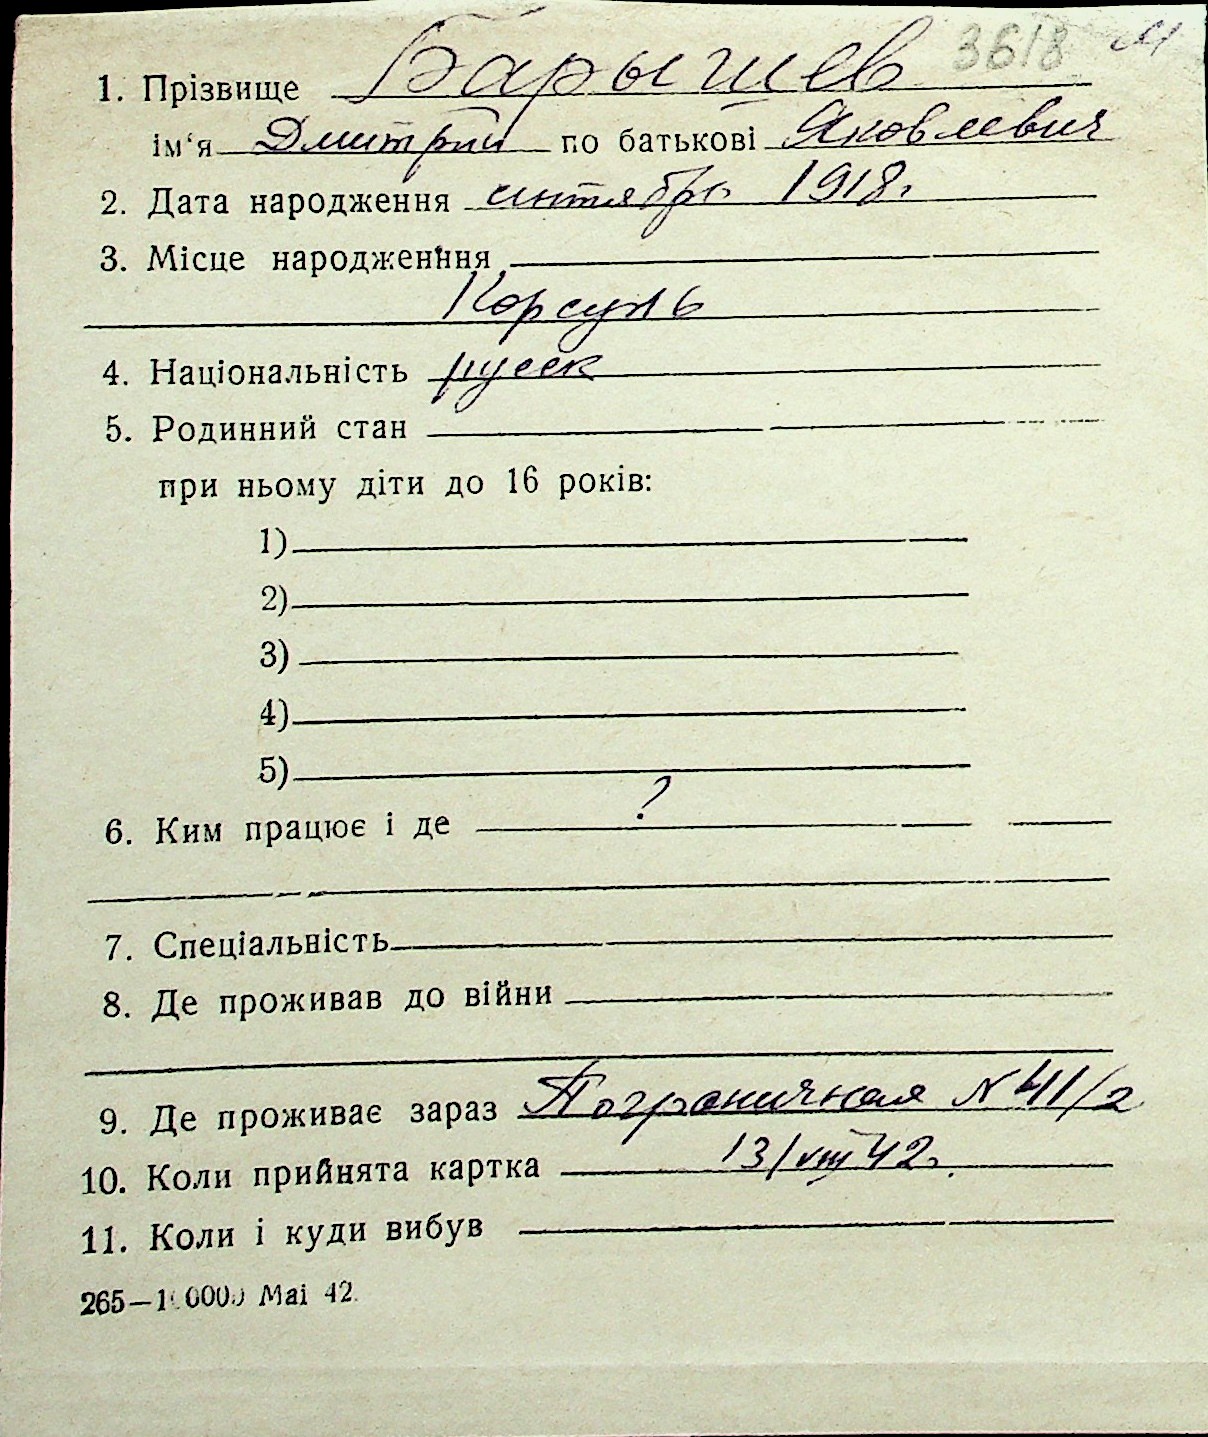 3618 м
1. Прізвище Барышев
ім‘я Дмитрий по батькові Яковлевич
2. Дата народження сентябрь 1918.
3. Місце народження
Корсунь
4. Національність русск
5. Родинний стан
при ньому діти до 16 років:
1)
2)
3)
4)
5)
6. Ким працює і де ?
7. Спеціальність
8. Де проживав до війни
9. Де проживає зараз Пограничная N 41/2
10. Коли прийнята картка 13/VIII 42.
11. Коли і куди вибув
265—10000 Mai 42.